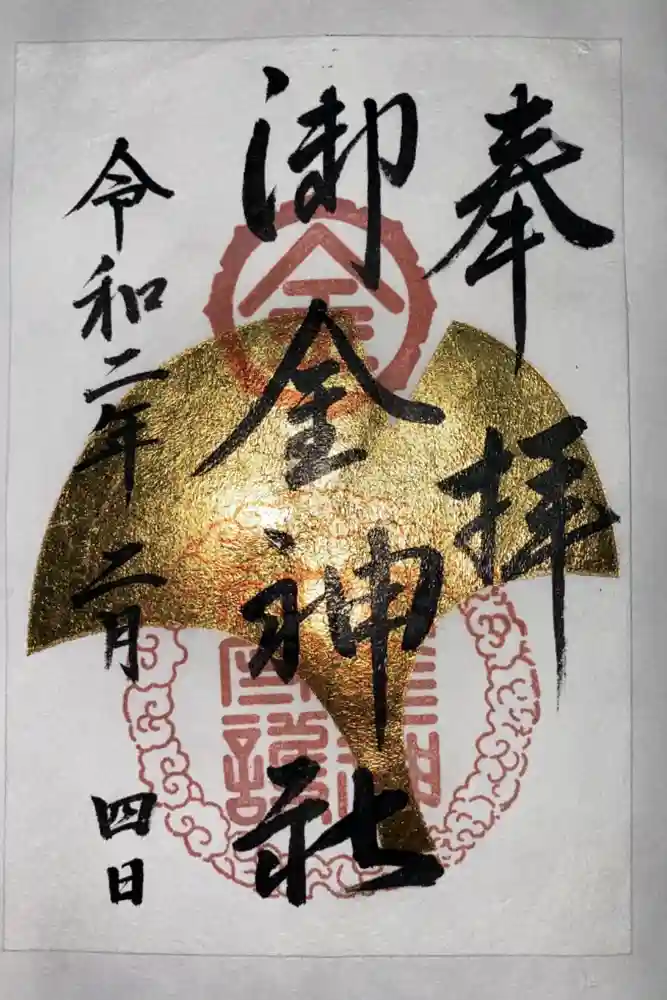 奉拝
御金神社
令和二年二月四日